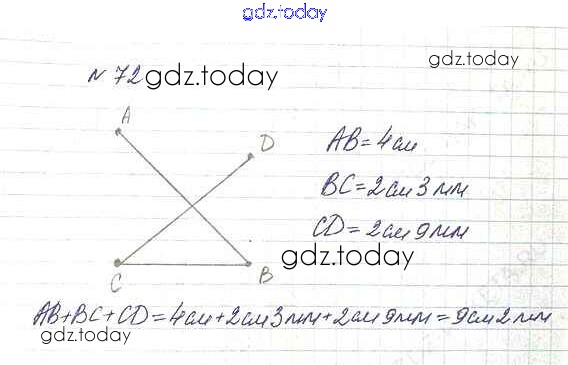 gdz.today
gdz.today
N 72 gdz.today
A
D
AB=4см
BC=2см 3мм
CD=2см 9мм
gdz.today
C
B
AB+BC+CD=4см+2см 3мм+2см 9мм=9см 2мм
gdz.today